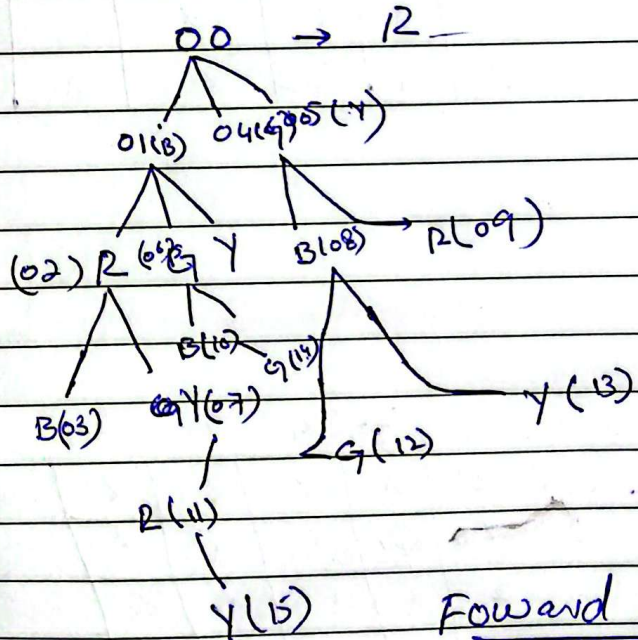 00 → R
01(B) 04(G) 05(Y)
(02) R (06) G Y B(08) R(09)
B(10) G(14)
B(03) Y(07) Y(13)
G(12)
R(11)
Y(15) Foward